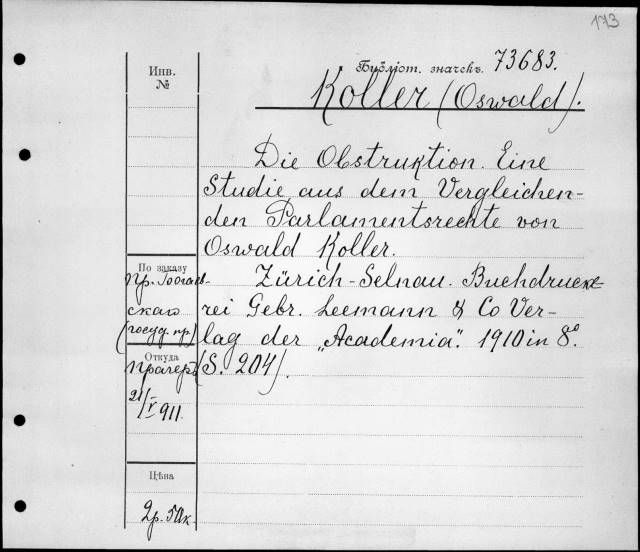 173
Инв.
№
Библіот. значекъ. 73683.
Koller (Oswald).
Die Obstruktion. Eine
Studie aus dem Vergleichen-
den Parlamentsrechte von
Oswald Koller.
Zürich-Selnau. Buchdrucke-
rei Gebr. Leemann & Co Ver-
lag der „Academia". 1910 in 8°.
(S. 204).
По заказу
пр.
скаго
(госуд. пр.)
Откуда
21/V 911.
Цѣна
2р. 50к.